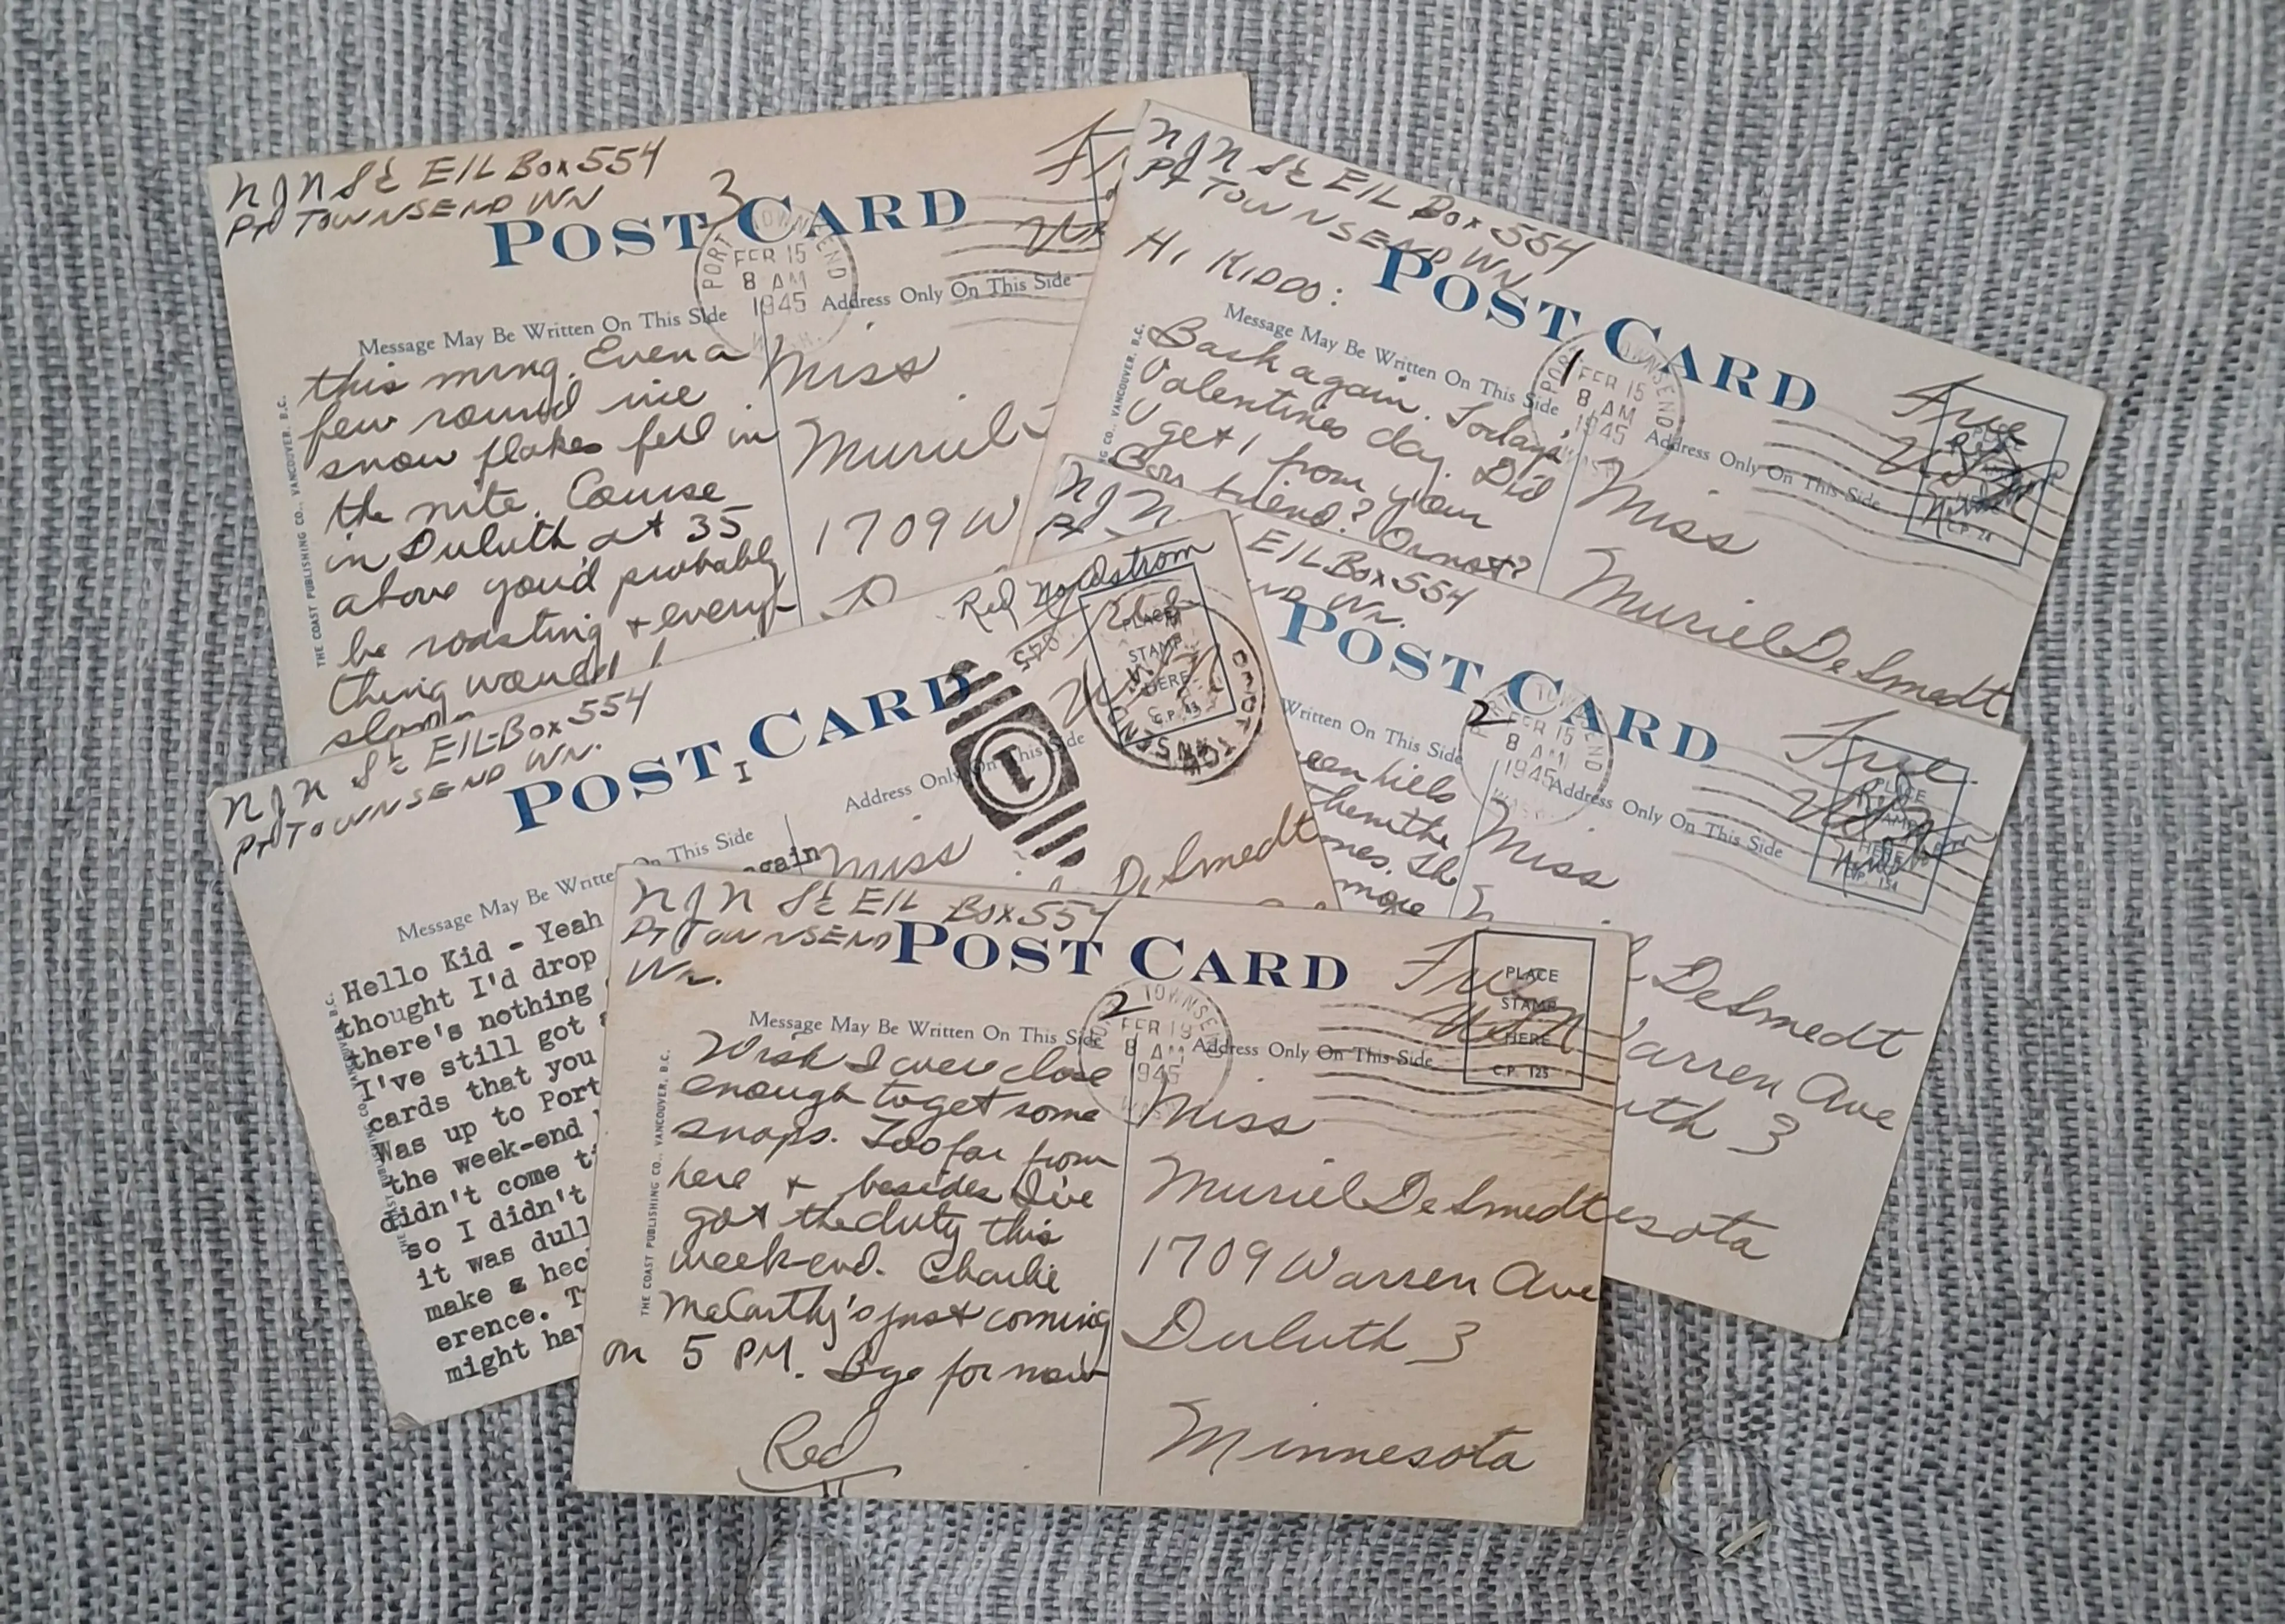 N J N Sta E/L Box 554
Pt TOWNSEND WN
3
POST CARD
PORT TOWNSEND
FEB 15
8 AM
1945
WASH.
Message May Be Written On This Side
Address Only On This Side
THE COAST PUBLISHING CO., VANCOUVER, B.C.
this mrng. Even a
few round ine
snow flakes fell in
the nite. Course
in Duluth at 35
above you'd probably
be roasting & every-
thing would
Miss
Muriel
1709 W
N J N Sta E/L Box 554
Pt TOWNSEND WN
HI KIDDO:
POST CARD
1
TOWNSEND
FEB 15
8 AM
1945
Message May Be Written On This Side
Address Only On This Side
CO., VANCOUVER, B.C.
Back again. Today's
Valentines day. Did
U get 1 from your
Boy friend? Or not?
Free
C.P. 28
Miss
Muriel DeSmedt
N J N
E/L Box 554
ND Wn.
POST CARD
2
FEB 15
8 AM
1945
Written On This Side
Address Only On This Side
een hills
Then the
mes. Th
more
Free
PLACE
STAMP
HERE
C.P. 154
Miss
DeSmedt
Warren Ave
uth 3
esota
N J N Sta E/L-Box 554
Pt TOWNSEND WN.
POST CARD
I
Red Nordstrom
PLACE
STAMP
HERE
C.P. 43
1
Message May Be Written On This Side
Address Only On This Side
again
Hello Kid - Yeah
thought I'd drop
there's nothing
I've still got
cards that you
Was up to Port
the week-end
didn't come ti
so I didn't
it was dull
make a hec
erence. T
might hav
Miss
DeSmedt
N J N Sta E/L Box 554
Pt TOWNSEND
Wn.
POST CARD
2
TOWNSEND
FEB 19
8 AM
1945
Message May Be Written On This Side
Address Only On This Side
THE COAST PUBLISHING CO., VANCOUVER, B.C.
Wish I were close
enough to get some
snaps. Too far from
here & besides I've
got the duty this
week-end. Charlie
McCarthy's just coming
on 5 PM. Bye for now
Red
Free
USN
PLACE
STAMP
HERE
C.P. 125
Miss
Muriel DeSmedt
1709 Warren Ave
Duluth 3
Minnesota